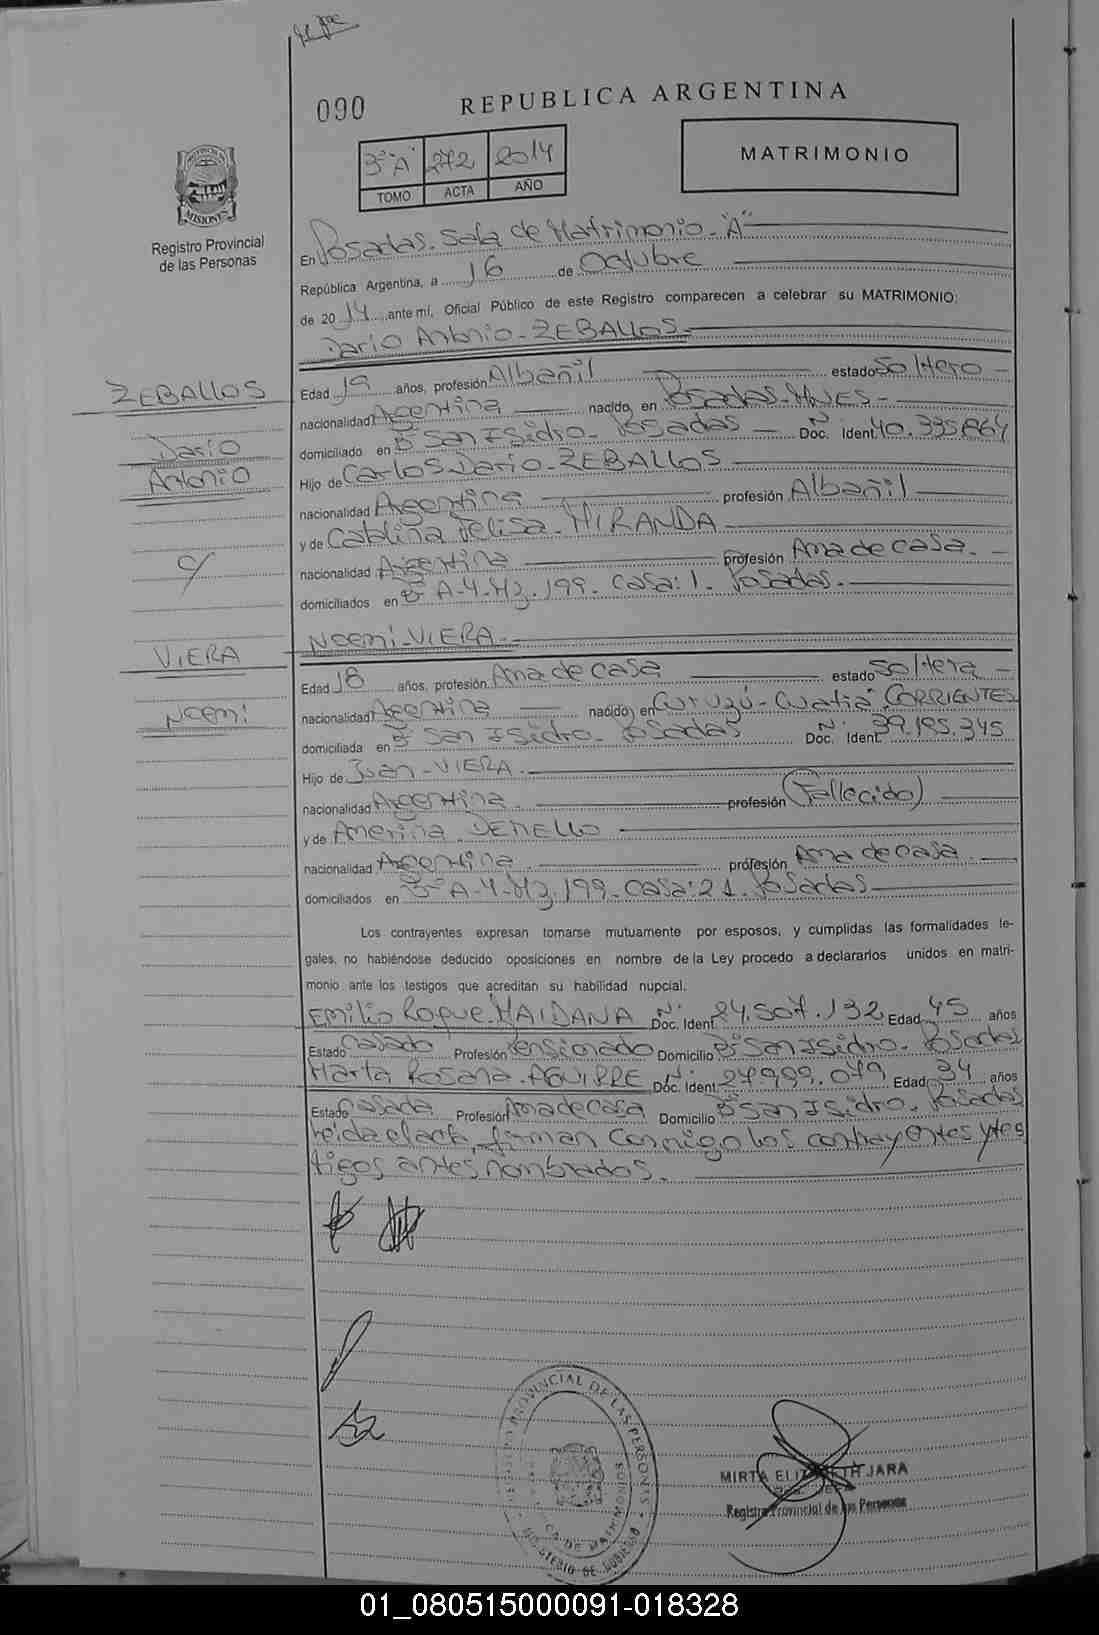 090
REPUBLICA ARGENTINA
3º "A" 272 2014
TOMO ACTA AÑO
MATRIMONIO
PROVINCIA
MISIONES
Registro Provincial
de las Personas
En Posadas. Sala de Matrimonio "A"
República Argentina, a 16 de Octubre
de 2014 ante mí, Oficial Público de este Registro comparecen a celebrar su MATRIMONIO:
Dario Antonio - ZEBALLOS.
ZEBALLOS
Dario
Antonio
c/
VIERA
Noemi
Edad 19 años, profesión Albañil estado Soltero
nacionalidad Argentina nacido en Posadas - Mnes
domiciliado en Bº San Isidro - Posadas Doc. Ident. Nº 40.335.864
Hijo de Carlos Dario - ZEBALLOS
nacionalidad Argentina profesión Albañil
y de Catalina Felisa - MIRANDA
nacionalidad Argentina profesión Ama de casa.
domiciliados en Bº A-4-Mz. 199. Casa: 1. Posadas.
Noemi - VIERA.
Edad 18 años, profesión Ama de casa estado Soltera
nacionalidad Argentina nacido en Curuzú - Cuatiá CORRIENTES
domiciliada en Bº San Isidro - Posadas Doc. Ident. Nº 39.195.345
Hijo de Juan - VIERA.
nacionalidad Argentina. profesión (Fallecido)
y de Amerina DEMELLO
nacionalidad Argentina profesión Ama de casa.
domiciliados en Bº A-4-Mz. 199 - Casa: 21. Posadas
Los contrayentes expresan tomarse mutuamente por esposos, y cumplidas las formalidades le-
gales, no habiéndose deducido oposiciones en nombre de la Ley procedo a declararlos unidos en matri-
monio ante los testigos que acreditan su habilidad nupcial.
Emilio Roque - MAIDANA Doc. Ident. Nº 24.507.132 Edad 45 años
Estado casado Profesión Pensionado Domicilio Bº San Isidro - Posadas
Marta Rosana - AGUIRRE Doc. Ident. Nº 27.999.079 Edad 34 años
Estado casada Profesión Ama de casa Domicilio Bº San Isidro - Posadas
leida el acta, firman conmigo los contrayentes y tes
tigos antes nombrados.
PROVINCIAL DE LAS PERSONAS
DE MATRIMONIOS
MINISTERIO DE GOBIERNO
MIRTA ELIZABETH JARA
Registro Provincial de las Personas
01_080515000091-018328